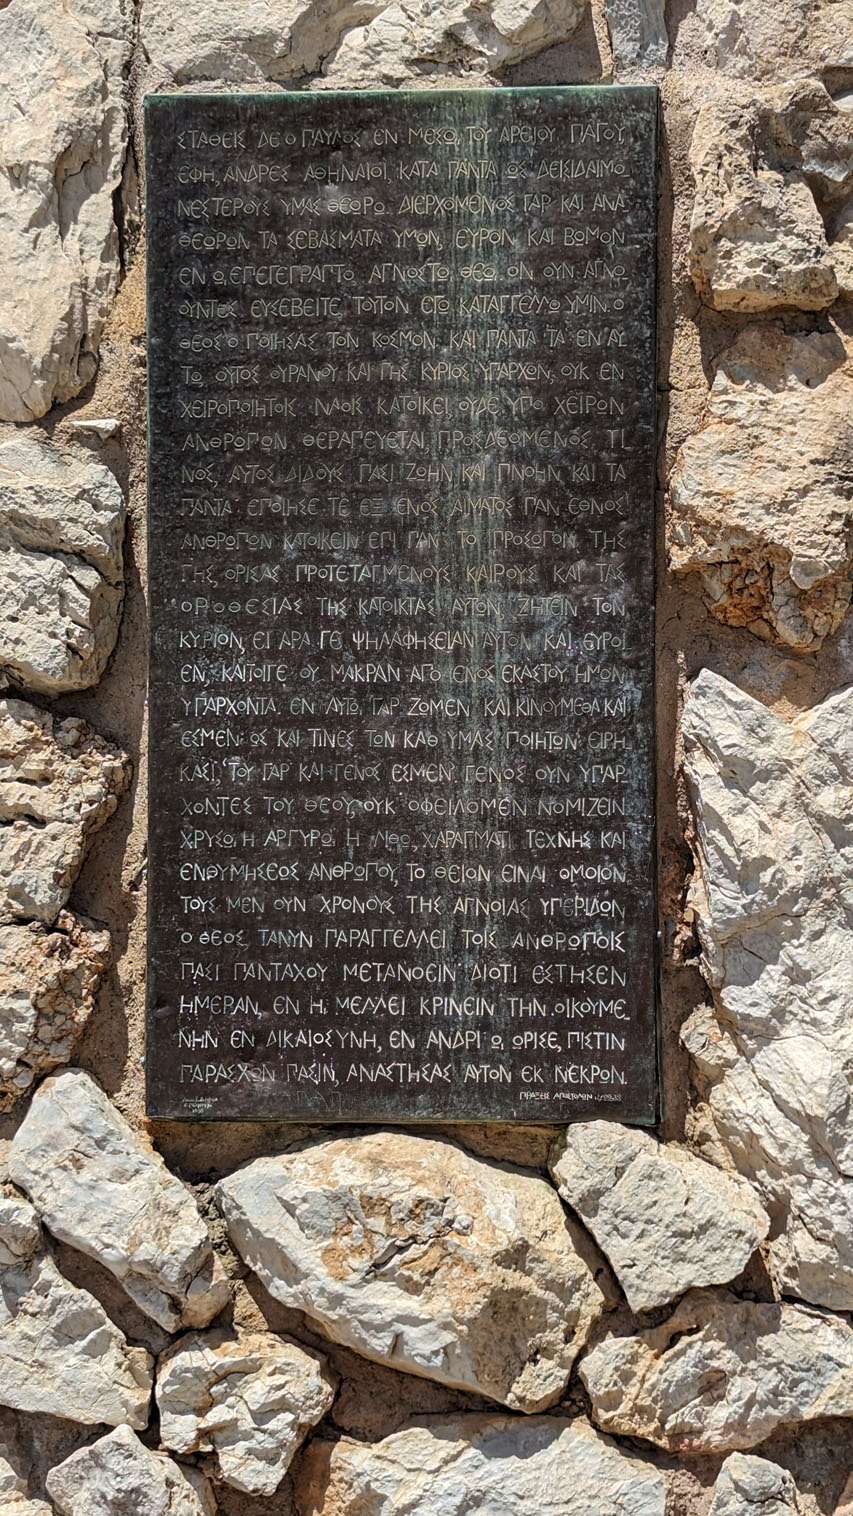 ΣΤΑΘΕΙΣ ΔΕ Ο ΠΑΥΛΟΣ ΕΝ ΜΕΣΩ, ΤΟΥ ΑΡΕΙΟΥ ΠΑΓΟΥ,
ΕΦΗ, ΑΝΔΡΕΣ ΑΘΗΝΑΙΟΙ, ΚΑΤΑ ΠΑΝΤΑ ΩΣ ΔΕΙΣΙΔΑΙΜΟ
ΝΕΣΤΕΡΟΥΣ ΥΜΑΣ ΘΕΩΡΩ. ΔΙΕΡΧΟΜΕΝΟΣ ΓΑΡ ΚΑΙ ΑΝΑ
ΘΕΩΡΩΝ ΤΑ ΣΕΒΑΣΜΑΤΑ ΥΜΩΝ, ΕΥΡΟΝ ΚΑΙ ΒΩΜΟΝ
ΕΝ Ω, ΕΠΕΓΕΓΡΑΠΤΟ. ΑΓΝΩΣΤΩ. ΘΕΩ. ΟΝ ΟΥΝ ΑΓΝΟ
ΟΥΝΤΕΣ ΕΥΣΕΒΕΙΤΕ, ΤΟΥΤΟΝ ΕΓΩ ΚΑΤΑΓΓΕΛΛΩ ΥΜΙΝ. Ο
ΘΕΟΣ Ο ΠΟΙΗΣΑΣ ΤΟΝ ΚΟΣΜΟΝ ΚΑΙ ΠΑΝΤΑ ΤΑ ΕΝ ΑΥ
ΤΩ, ΟΥΤΟΣ ΟΥΡΑΝΟΥ ΚΑΙ ΓΗΣ ΚΥΡΙΟΣ ΥΠΑΡΧΩΝ, ΟΥΚ ΕΝ
ΧΕΙΡΟΠΟΙΗΤΟΙΣ ΝΑΟΙΣ ΚΑΤΟΙΚΕΙ, ΟΥΔΕ ΥΠΟ ΧΕΙΡΩΝ
ΑΝΘΡΩΠΩΝ ΘΕΡΑΠΕΥΕΤΑΙ, ΠΡΟΣΔΕΟΜΕΝΟΣ ΤΙ
ΝΟΣ, ΑΥΤΟΣ ΔΙΔΟΥΣ ΠΑΣΙ ΖΩΗΝ ΚΑΙ ΠΝΟΗΝ ΚΑΙ ΤΑ
ΠΑΝΤΑ. ΕΠΟΙΗΣΕ ΤΕ ΕΞ ΕΝΟΣ ΑΙΜΑΤΟΣ ΠΑΝ ΕΘΝΟΣ
ΑΝΘΡΩΠΩΝ ΚΑΤΟΙΚΕΙΝ ΕΠΙ ΠΑΝ ΤΟ ΠΡΟΣΩΠΟΝ ΤΗΣ
ΓΗΣ, ΟΡΙΣΑΣ ΠΡΟΤΕΤΑΓΜΕΝΟΥΣ ΚΑΙΡΟΥΣ ΚΑΙ ΤΑΣ
ΟΡΟΘΕΣΙΑΣ ΤΗΣ ΚΑΤΟΙΚΙΑΣ ΑΥΤΩΝ ΖΗΤΕΙΝ ΤΟΝ
ΚΥΡΙΟΝ, ΕΙ ΑΡΑ ΓΕ ΨΗΛΑΦΗΣΕΙΑΝ ΑΥΤΟΝ ΚΑΙ ΕΥΡΟΙ
ΕΝ, ΚΑΙΤΟΙΓΕ ΟΥ ΜΑΚΡΑΝ ΑΠΟ ΕΝΟΣ ΕΚΑΣΤΟΥ ΗΜΩΝ
ΥΠΑΡΧΟΝΤΑ. ΕΝ ΑΥΤΩ, ΓΑΡ ΖΩΜΕΝ ΚΑΙ ΚΙΝΟΥΜΕΘΑ ΚΑΙ
ΕΣΜΕΝ. ΩΣ ΚΑΙ ΤΙΝΕΣ ΤΩΝ ΚΑΘ ΥΜΑΣ ΠΟΙΗΤΩΝ ΕΙΡΗ
ΚΑΣΙ, ΤΟΥ ΓΑΡ ΚΑΙ ΓΕΝΟΣ ΕΣΜΕΝ. ΓΕΝΟΣ ΟΥΝ ΥΠΑΡ
ΧΟΝΤΕΣ ΤΟΥ ΘΕΟΥ, ΟΥΚ ΟΦΕΙΛΟΜΕΝ ΝΟΜΙΖΕΙΝ
ΧΡΥΣΩ, Η ΑΡΓΥΡΩ, Η ΛΙΘΩ, ΧΑΡΑΓΜΑΤΙ ΤΕΧΝΗΣ ΚΑΙ
ΕΝΘΥΜΗΣΕΩΣ ΑΝΘΡΩΠΟΥ, ΤΟ ΘΕΙΟΝ ΕΙΝΑΙ ΟΜΟΙΟΝ.
ΤΟΥΣ ΜΕΝ ΟΥΝ ΧΡΟΝΟΥΣ ΤΗΣ ΑΓΝΟΙΑΣ ΥΠΕΡΙΔΩΝ
Ο ΘΕΟΣ, ΤΑΝΥΝ ΠΑΡΑΓΓΕΛΛΕΙ ΤΟΙΣ ΑΝΘΡΩΠΟΙΣ
ΠΑΣΙ ΠΑΝΤΑΧΟΥ ΜΕΤΑΝΟΕΙΝ ΔΙΟΤΙ ΕΣΤΗΣΕΝ
ΗΜΕΡΑΝ, ΕΝ Η, ΜΕΛΛΕΙ ΚΡΙΝΕΙΝ ΤΗΝ ΟΙΚΟΥΜΕ
ΝΗΝ ΕΝ ΔΙΚΑΙΟΣΥΝΗ, ΕΝ ΑΝΔΡΙ Ω, ΩΡΙΣΕ, ΠΙΣΤΙΝ
ΠΑΡΑΣΧΩΝ ΠΑΣΙΝ, ΑΝΑΣΤΗΣΑΣ ΑΥΤΟΝ ΕΚ ΝΕΚΡΩΝ.
ΠΡΑΞΕΙΣ ΑΠΟΣΤΟΛΩΝ